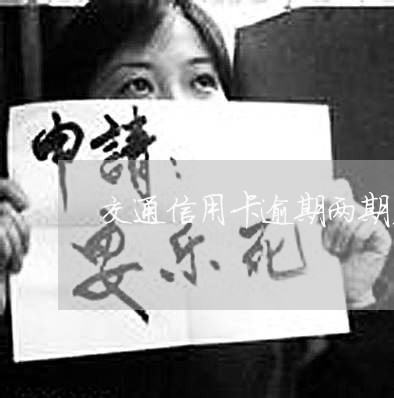 申請：
交通信用卡逾期两期
安乐死